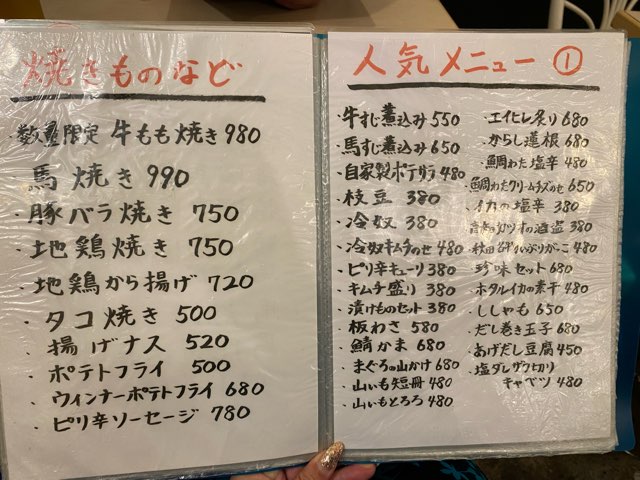 焼きものなど
・数量限定 牛もも焼き 980
・馬焼き 990
・豚バラ焼き 750
・地鶏焼き 750
・地鶏から揚げ 720
・タコ焼き 500
・揚げナス 520
・ポテトフライ 500
・ウィンナーポテトフライ 680
・ピリ辛ソーセージ 780
人気メニュー ①
・牛すじ煮込み 550
・馬すじ煮込み 650
・自家製ポテサラ 480
・枝豆 380
・冷奴 380
・冷奴キムチのせ 480
・ピリ辛キューリ 380
・キムチ盛り 380
・漬けものセット 380
・板わさ 580
・鯖かま 680
・まぐろの山かけ 680
・山いも短冊 480
・山いもとろろ 480
・エイヒレ炙り 680
・からし蓮根 680
・鯛わた塩辛 480
・鯛わたクリームチーズのせ 650
・イカの塩辛 380
・高知カツオの酒盗 380
・秋田名物いぶりがっこ 480
・珍味セット 680
・ホタルイカの素干 480
・ししゃも 650
・だし巻き玉子 680
・あげだし豆腐 450
・塩ダレザク切り
キャベツ 480